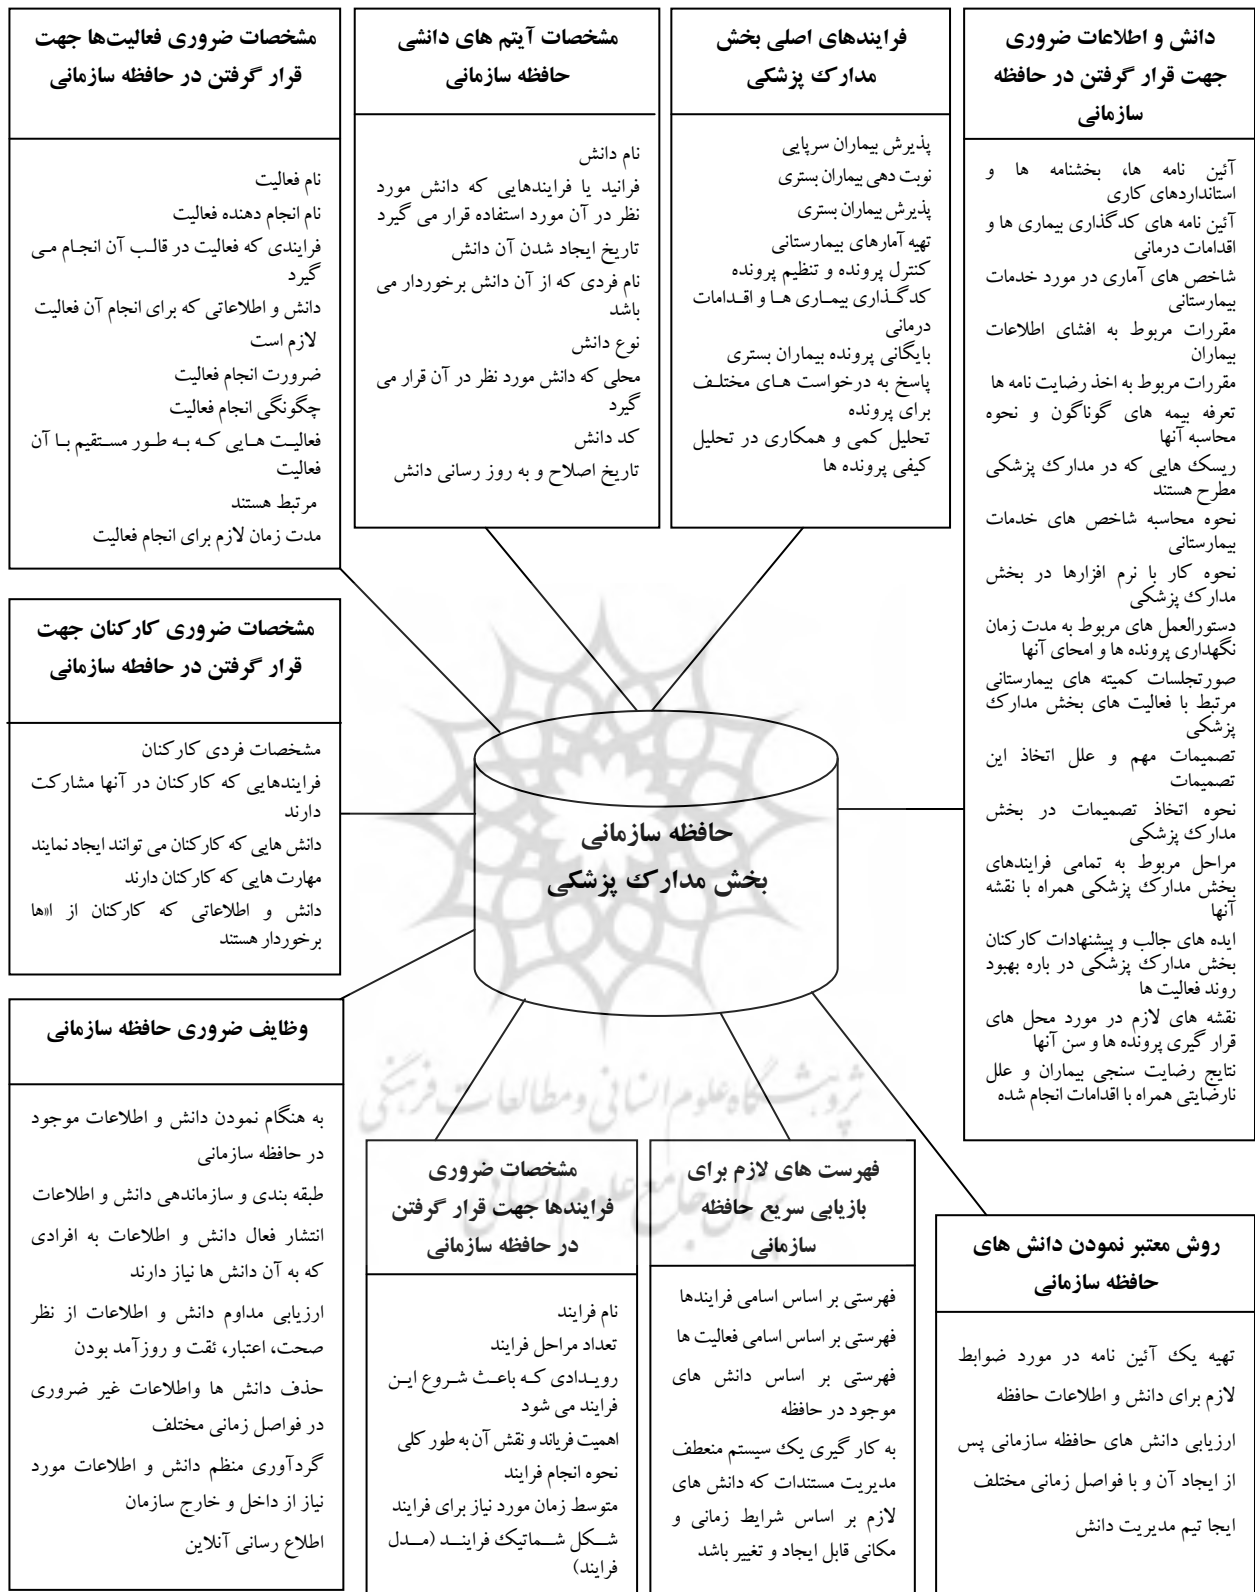 دانش و اطلاعات ضروری
جهت قرار گرفتن در حافظه
سازمانی
آئین نامه ها، بخشنامه ها و
استانداردهای کاری
آئین نامه های کدگذاری بیماری ها و
اقدامات درمانی
شاخص های آماری در مورد خدمات
بیمارستانی
مقررات مربوط به افشای اطلاعات
بیماران
مقررات مربوط به اخذ رضایت نامه ها
تعرفه بیمه های گوناگون و نحوه
محاسبه آنها
ریسک هایی که در مدارک پزشکی
مطرح هستند
نحوه محاسبه شاخص های خدمات
بیمارستانی
نحوه کار با نرم افزارها در بخش
مدارک پزشکی
دستورالعمل های مربوط به مدت زمان
نگهداری پرونده ها و امحای آنها
صورتجلسات کمیته های بیمارستانی
مرتبط با فعالیت های بخش مدارک
پزشکی
تصمیمات مهم و علل اتخاذ این
تصمیمات
نحوه اتخاذ تصمیمات در بخش
مدارک پزشکی
مراحل مربوط به تمامی فرایندهای
بخش مدارک پزشکی همراه با نقشه
آنها
ایده های جالب و پیشنهادات کارکنان
بخش مدارک پزشکی در باره بهبود
روند فعالیت ها
نقشه های لازم در مورد محل های
قرار گیری پرونده ها و سن آنها
نتایج رضایت سنجی بیماران و علل
نارضایتی همراه با اقدامات انجام شده
فرایندهای اصلی بخش
مدارک پزشکی
پذیرش بیماران سرپایی
نوبت دهی بیماران بستری
پذیرش بیماران بستری
تهیه آمارهای بیمارستانی
کنترل پرونده و تنظیم پرونده
کدگذاری بیماری ها و اقدامات
درمانی
بایگانی پرونده بیماران بستری
پاسخ به درخواست های مختلف
برای پرونده
تحلیل کمی و همکاری در تحلیل
کیفی پرونده ها
مشخصات آیتم های دانشی
حافظه سازمانی
نام دانش
فرانید یا فرایندهایی که دانش مورد
نظر در آن مورد استفاده قرار می گیرد
تاریخ ایجاد شدن آن دانش
نام فردی که از آن دانش برخوردار می
باشد
نوع دانش
محلی که دانش مورد نظر در آن قرار می
گیرد
کد دانش
تاریخ اصلاح و به روز رسانی دانش
مشخصات ضروری فعالیت‌ها جهت
قرار گرفتن در حافظه سازمانی
نام فعالیت
نام انجام دهنده فعالیت
فرایندی که فعالیت در قالب آن انجام می
گیرد
دانش و اطلاعاتی که برای انجام آن فعالیت
لازم است
ضرورت انجام فعالیت
چگونگی انجام فعالیت
فعالیت هایی که به طور مستقیم با آن
فعالیت
مرتبط هستند
مدت زمان لازم برای انجام فعالیت
مشخصات ضروری کارکنان جهت
قرار گرفتن در حافطه سازمانی
مشخصات فردی کارکنان
فرایندهایی که کارکنان در آنها مشارکت
دارند
دانش هایی که کارکنان می توانند ایجاد نمایند
مهارت هایی که کارکنان دارند
دانش و اطلاعاتی که کارکنان از اﻧﻬا
برخوردار هستند
حافظه سازمانی
بخش مدارک پزشکی
وظایف ضروری حافظه سازمانی
به هنگام نمودن دانش و اطلاعات موجود
در حافظه سازمانی
طبقه بندی و سازماندهی دانش و اطلاعات
انتشار فعال دانش و اطلاعات به افرادی
که به آن دانش ها نیاز دارند
ارزیابی مداوم دانش و اطلاعات از نظر
صحت، اعتبار، ثقت و روزآمد بودن
حذف دانش ها واطلاعات غیر ضروری
در فواصل زمانی مختلف
گردآوری منظم دانش و اطلاعات مورد
نیاز از داخل و خارج سازمان
اطلاع رسانی آنلاین
مشخصات ضروری
فرایندها جهت قرار گرفتن
در حافظه سازمانی
نام فرایند
تعداد مراحل فرایند
رویدادی که باعث شروع این
فرایند می شود
اهمیت فریاند و نقش آن به طور کلی
نحوه انجام فرایند
متوسط زمان مورد نیاز برای فرایند
شکل شماتیک فرایند (مدل
فرایند)
فهرست های لازم برای
بازیابی سریع حافظه
سازمانی
فهرستی بر اساس اسامی فرایندها
فهرستی بر اساس اسامی فعالیت ها
فهرستی بر اساس دانش های
موجود در حافظه
به کار گیری یک سیستم منعطف
مدیریت مستندات که دانش های
لازم بر اساس شرایط زمانی و
مکانی قابل ایجاد و تغییر باشد
روش معتبر نمودن دانش های
حافظه سازمانی
تهیه یک آئین نامه در مورد ضوابط
لازم برای دانش و اطلاعات حافظه
ارزیابی دانش های حافظه سازمانی پس
از ایجاد آن و با فواصل زمانی مختلف
ایجا تیم مدیریت دانش
پژوهشگاه علوم انسانی و مطالعات فرهنگی
پرتال جامع علوم انسانی